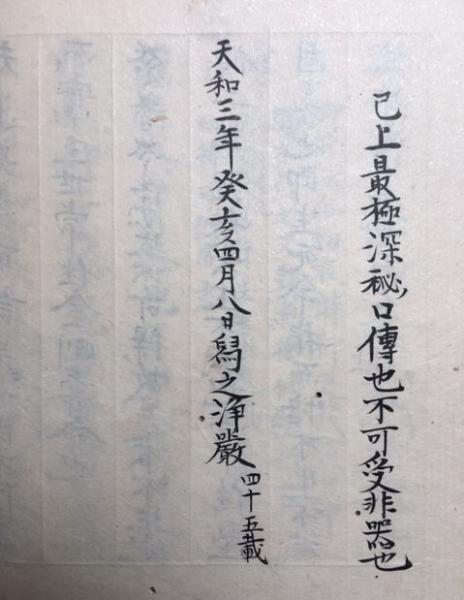 已上最極深秘口傳也不可受非器也
天和三年癸亥四月八日寫之浄嚴四十五載